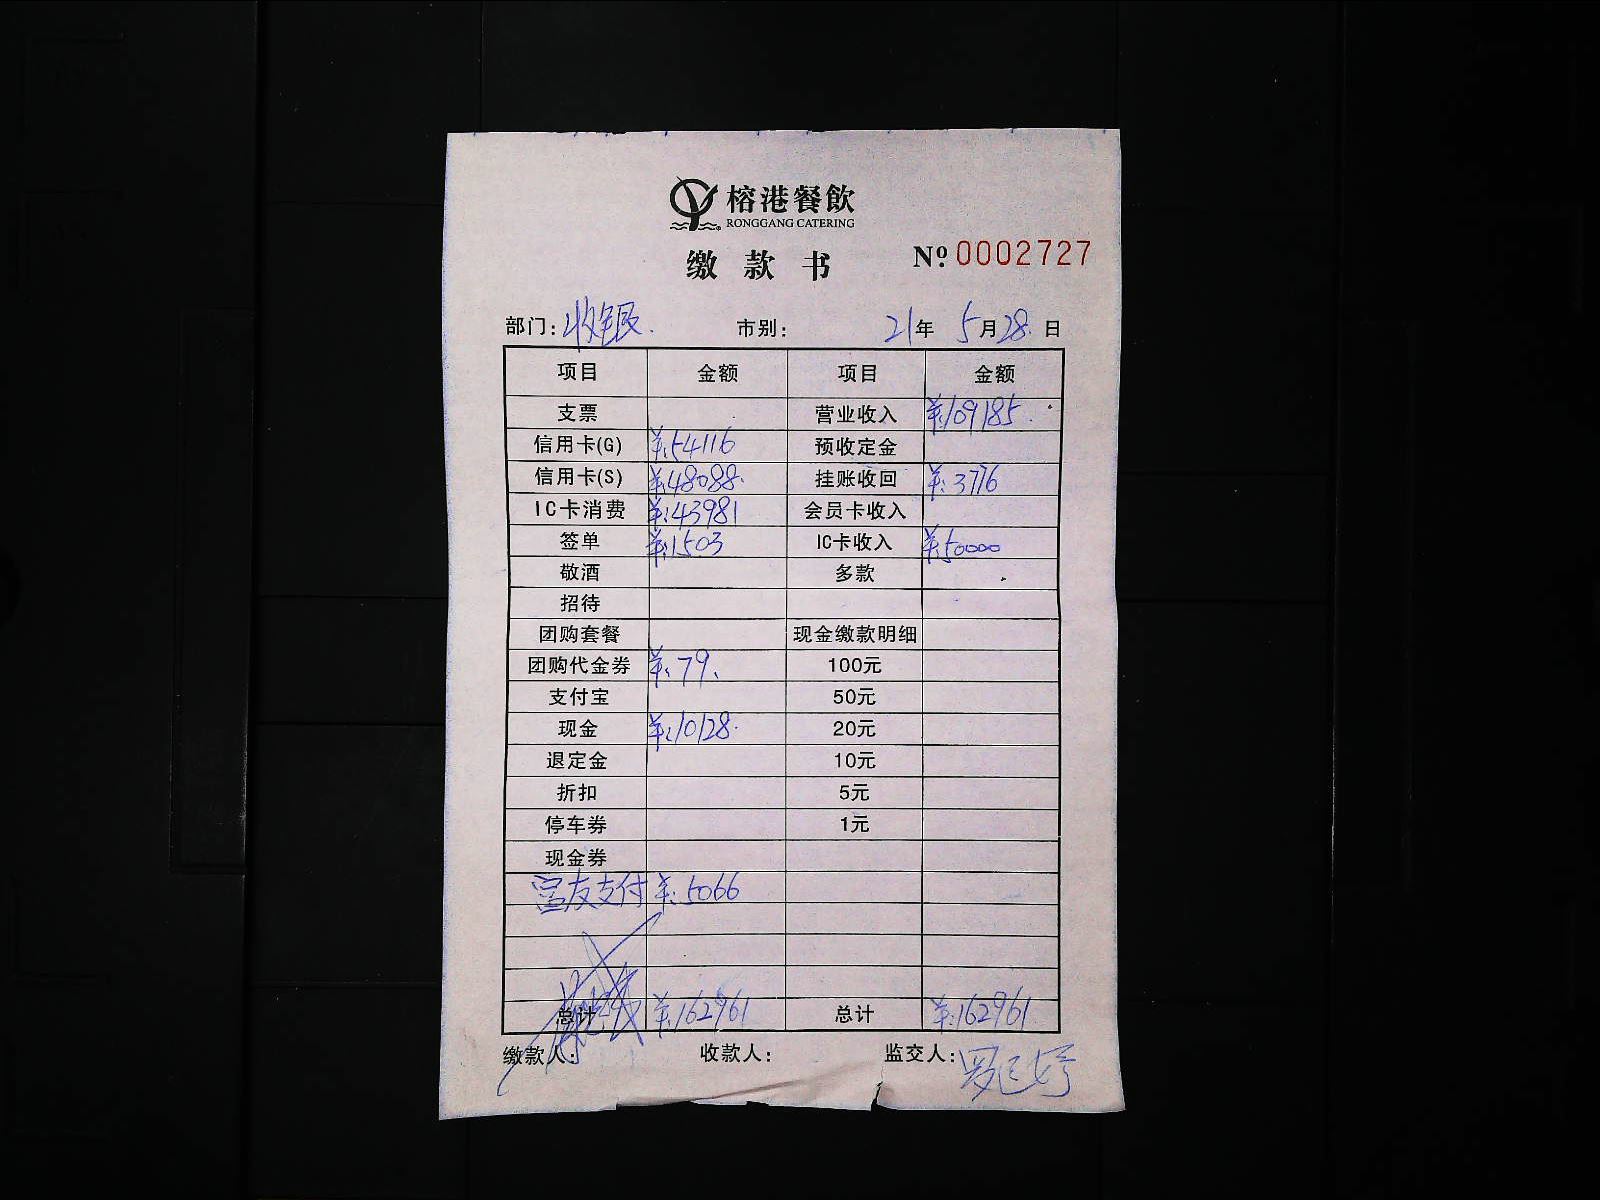 榕港餐飲
RONGGANG CATERING
缴款书 Nº 0002727
部门: 收银. 市别: 21年 5月28日
项目 金额 项目 金额
支票 营业收入 ¥:109185.
信用卡(G) ¥:54116 预收定金
信用卡(S) ¥:48088. 挂账收回 ¥:3776
IC卡消费 ¥:43981 会员卡收入
签单 ¥:1503 IC卡收入 ¥:50000
敬酒 多款
招待
团购套餐 现金缴款明细
团购代金券 ¥:79. 100元
支付宝 50元
现金 ¥:10128. 20元
退定金 10元
折扣 5元
停车券 1元
现金券
富友支付 ¥:5066
总计 ¥:162961 总计 ¥:162961
缴款人: 收款人: 监交人: